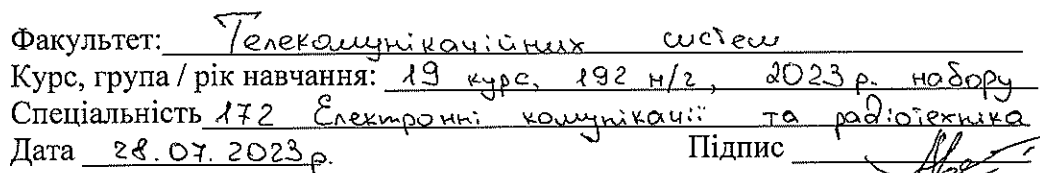 Факультет: Телекомунікаційних систем
Курс, група / рік навчання: 19 курс, 192 н/г, 2023 р. набору
Спеціальність 172 Електронні комунікації та радіотехніка
Дата 28.07.2023р. Підпис